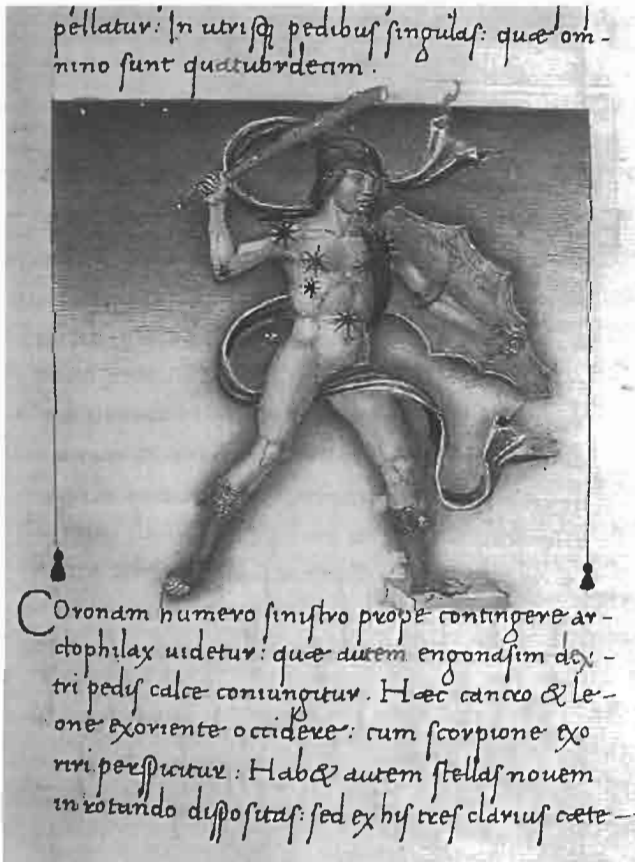 pellatur: In utrisq; pedibus singulas: quæ om-
nino sunt quatuordecim.
Coronam humero sinistro prope contingere ar-
ctophilax uidetur: quæ autem engonasim dex-
tri pedis calce coniungitur. Hæc cancro & le-
one exoriente occidere: cum scorpione exo
riri perspicitur: Hab& autem stellas nouem
in rotundo dispositas: sed ex his tres clarius cæte-